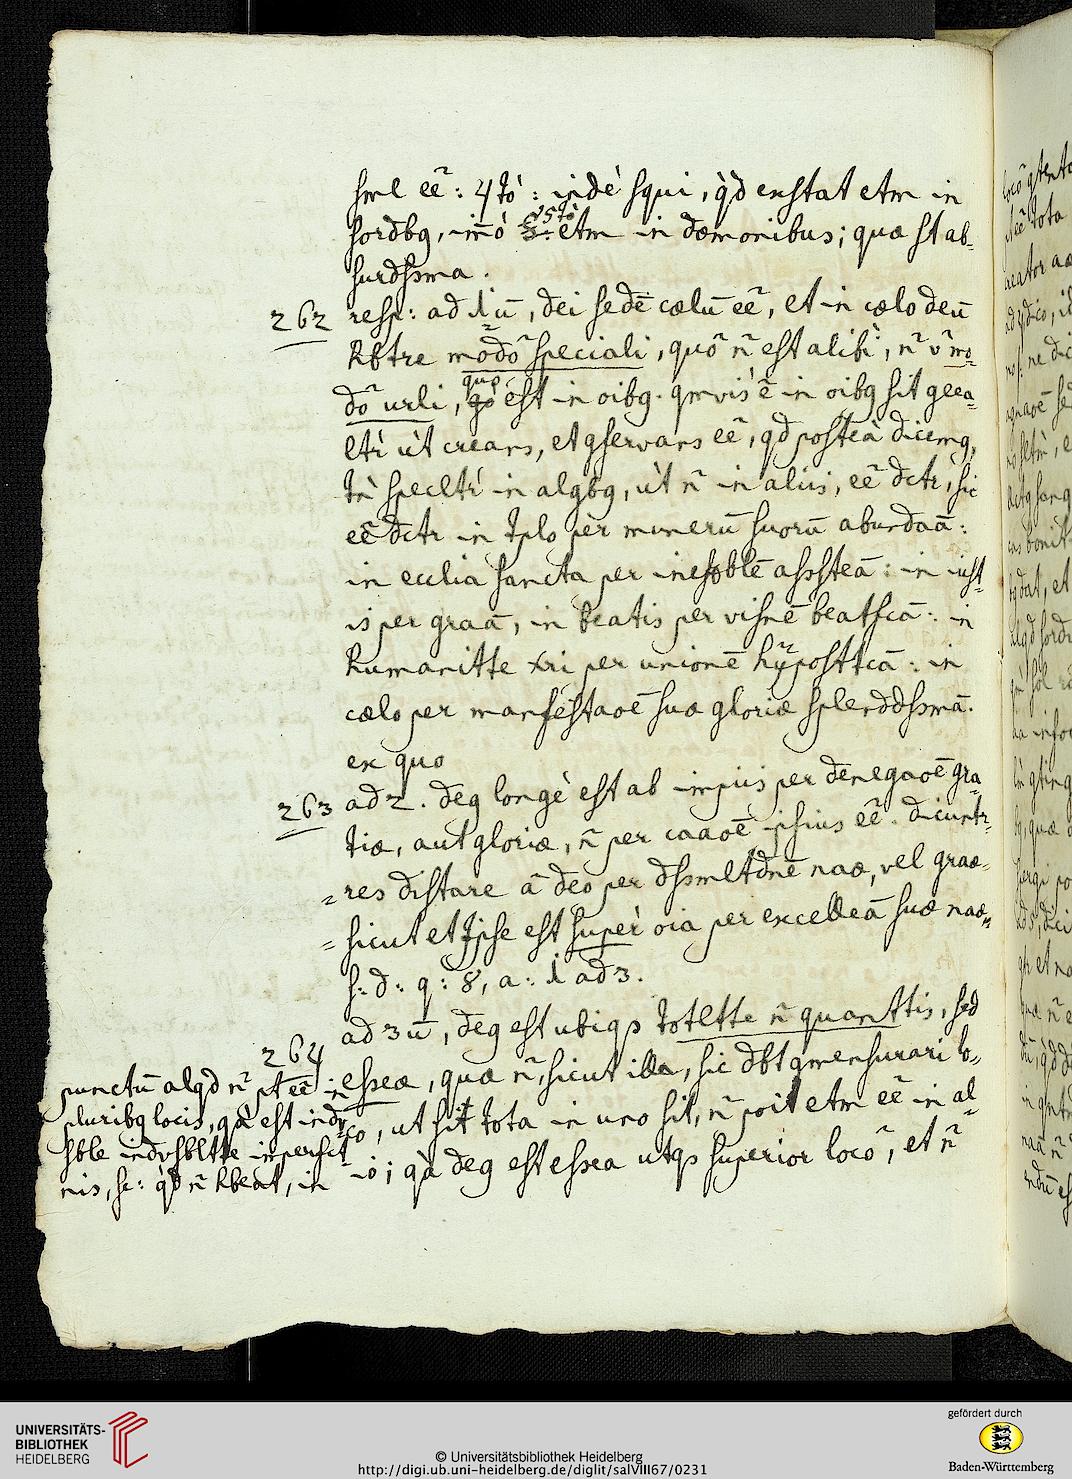 sml eẽ: 4tò: indè squi, q̀d exstat etm in
sordbg, imò 5tò etm in dæmonibus; quæ st ab-
surdssma.
262 resp: ad 1ũ, dei sedẽ cælũ eẽ, et in cælo deũ
hbtre modõ speciali, quõ ñ est alibì, ñ v̄ mo-
dõ urli, quo est in oibg. qmvis ẽ in oibg sit geea-
ltr ùt creans, et gservans eẽ, qd posteà dicemg,
tǹ specltr in algbg, ùt ñ in aliis, eẽ dctr, sic
eẽ dctr in tplo per munerũ suorũ abundaã:
in ecclia sancta per inefblẽ assteã: in iust-
is per graã, in beatis per visnẽ beatfcã: in
humanitte xri per unionẽ hÿposttcã: in
cælo per manfestaoẽ suæ gloriæ splenddssmã.
ex quo
263 ad 2. deg longè est ab impiis per denegaoẽ gra-
tiæ, aut gloriæ, ñ per caaoẽ ipsius eẽ. dicuntr
res distare ã deo per dssmltdnẽ naæ, vel graæ-
sicut et Ipse est supèr oia per excelleã suæ naæ,
s: d: q: 8, a: 1 ad 3.
ad 3ũ, deg est ubiqs totltte ñ quanttis, sed
264
esseæ, quæ ñ, sicut illa, sic dbt gmensurari lo-
co, ut sit tota in uno sit, ñ poit etm eẽ in al-
io; qà deg est essea utqs superior locõ, et ñ
punctũ alqd ñ pt eẽ in
pluribg locis, qà est indv-
sble indvsbltte imperfct-
nis, sc: q̀d ñ hbeat, in
UNIVERSITÄTS-
BIBLIOTHEK
HEIDELBERG
© Universitätsbibliothek Heidelberg
http://digi.ub.uni-heidelberg.de/diglit/salVIII67/0231
gefördert durch
Baden-Württemberg